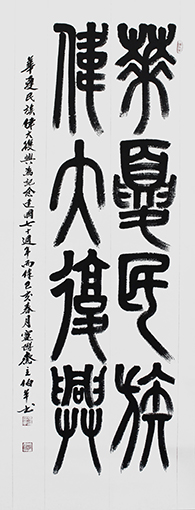 華夏民族
偉大復興
華夏民族偉大復興為紀念建國七十週年而作己亥春月主伯書